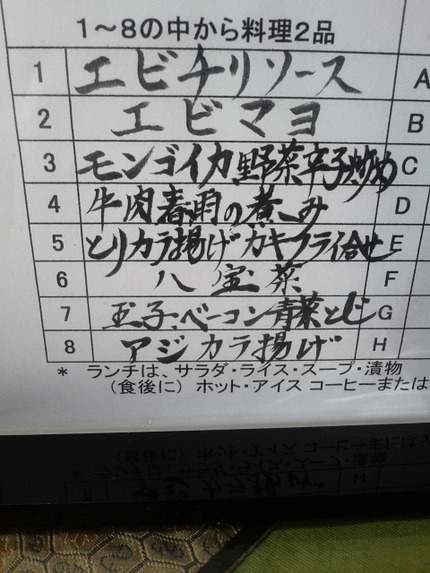 1～8の中から料理2品
1 エビチリソース A
2 エビマヨ B
3 モンゴイカ野菜辛子炒め C
4 牛肉春雨の煮こみ D
5 とりカラ揚げカキフライ合せ E
6 八宝菜 F
7 玉子、ベーコン青菜とじ G
8 アジカラ揚げ H
* ランチは、サラダ・ライス・スープ・漬物
（食後に） ホット・アイス コーヒーまたは